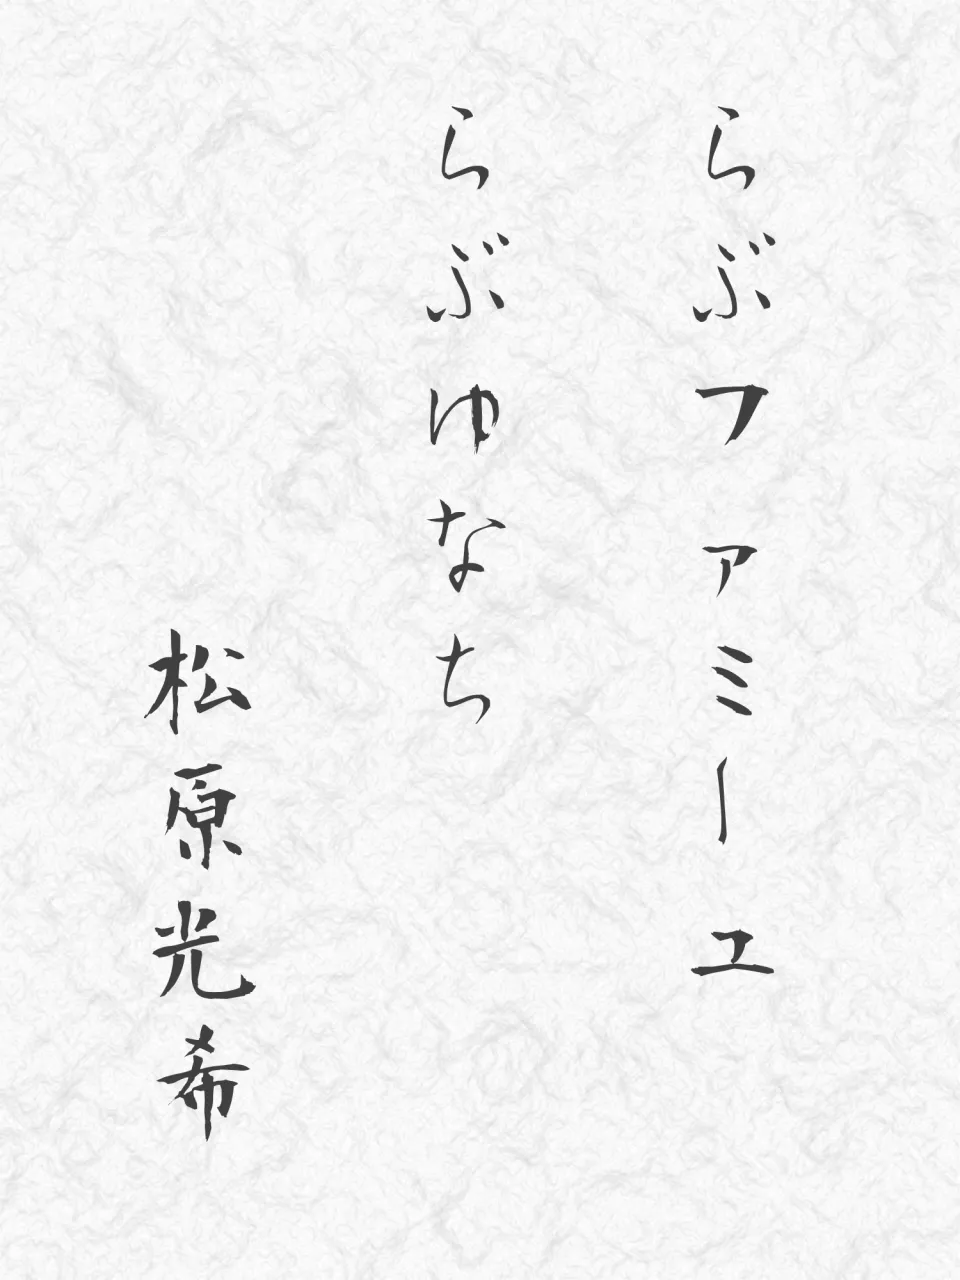 らぶファミーユ
らぶゆなち
松原光希